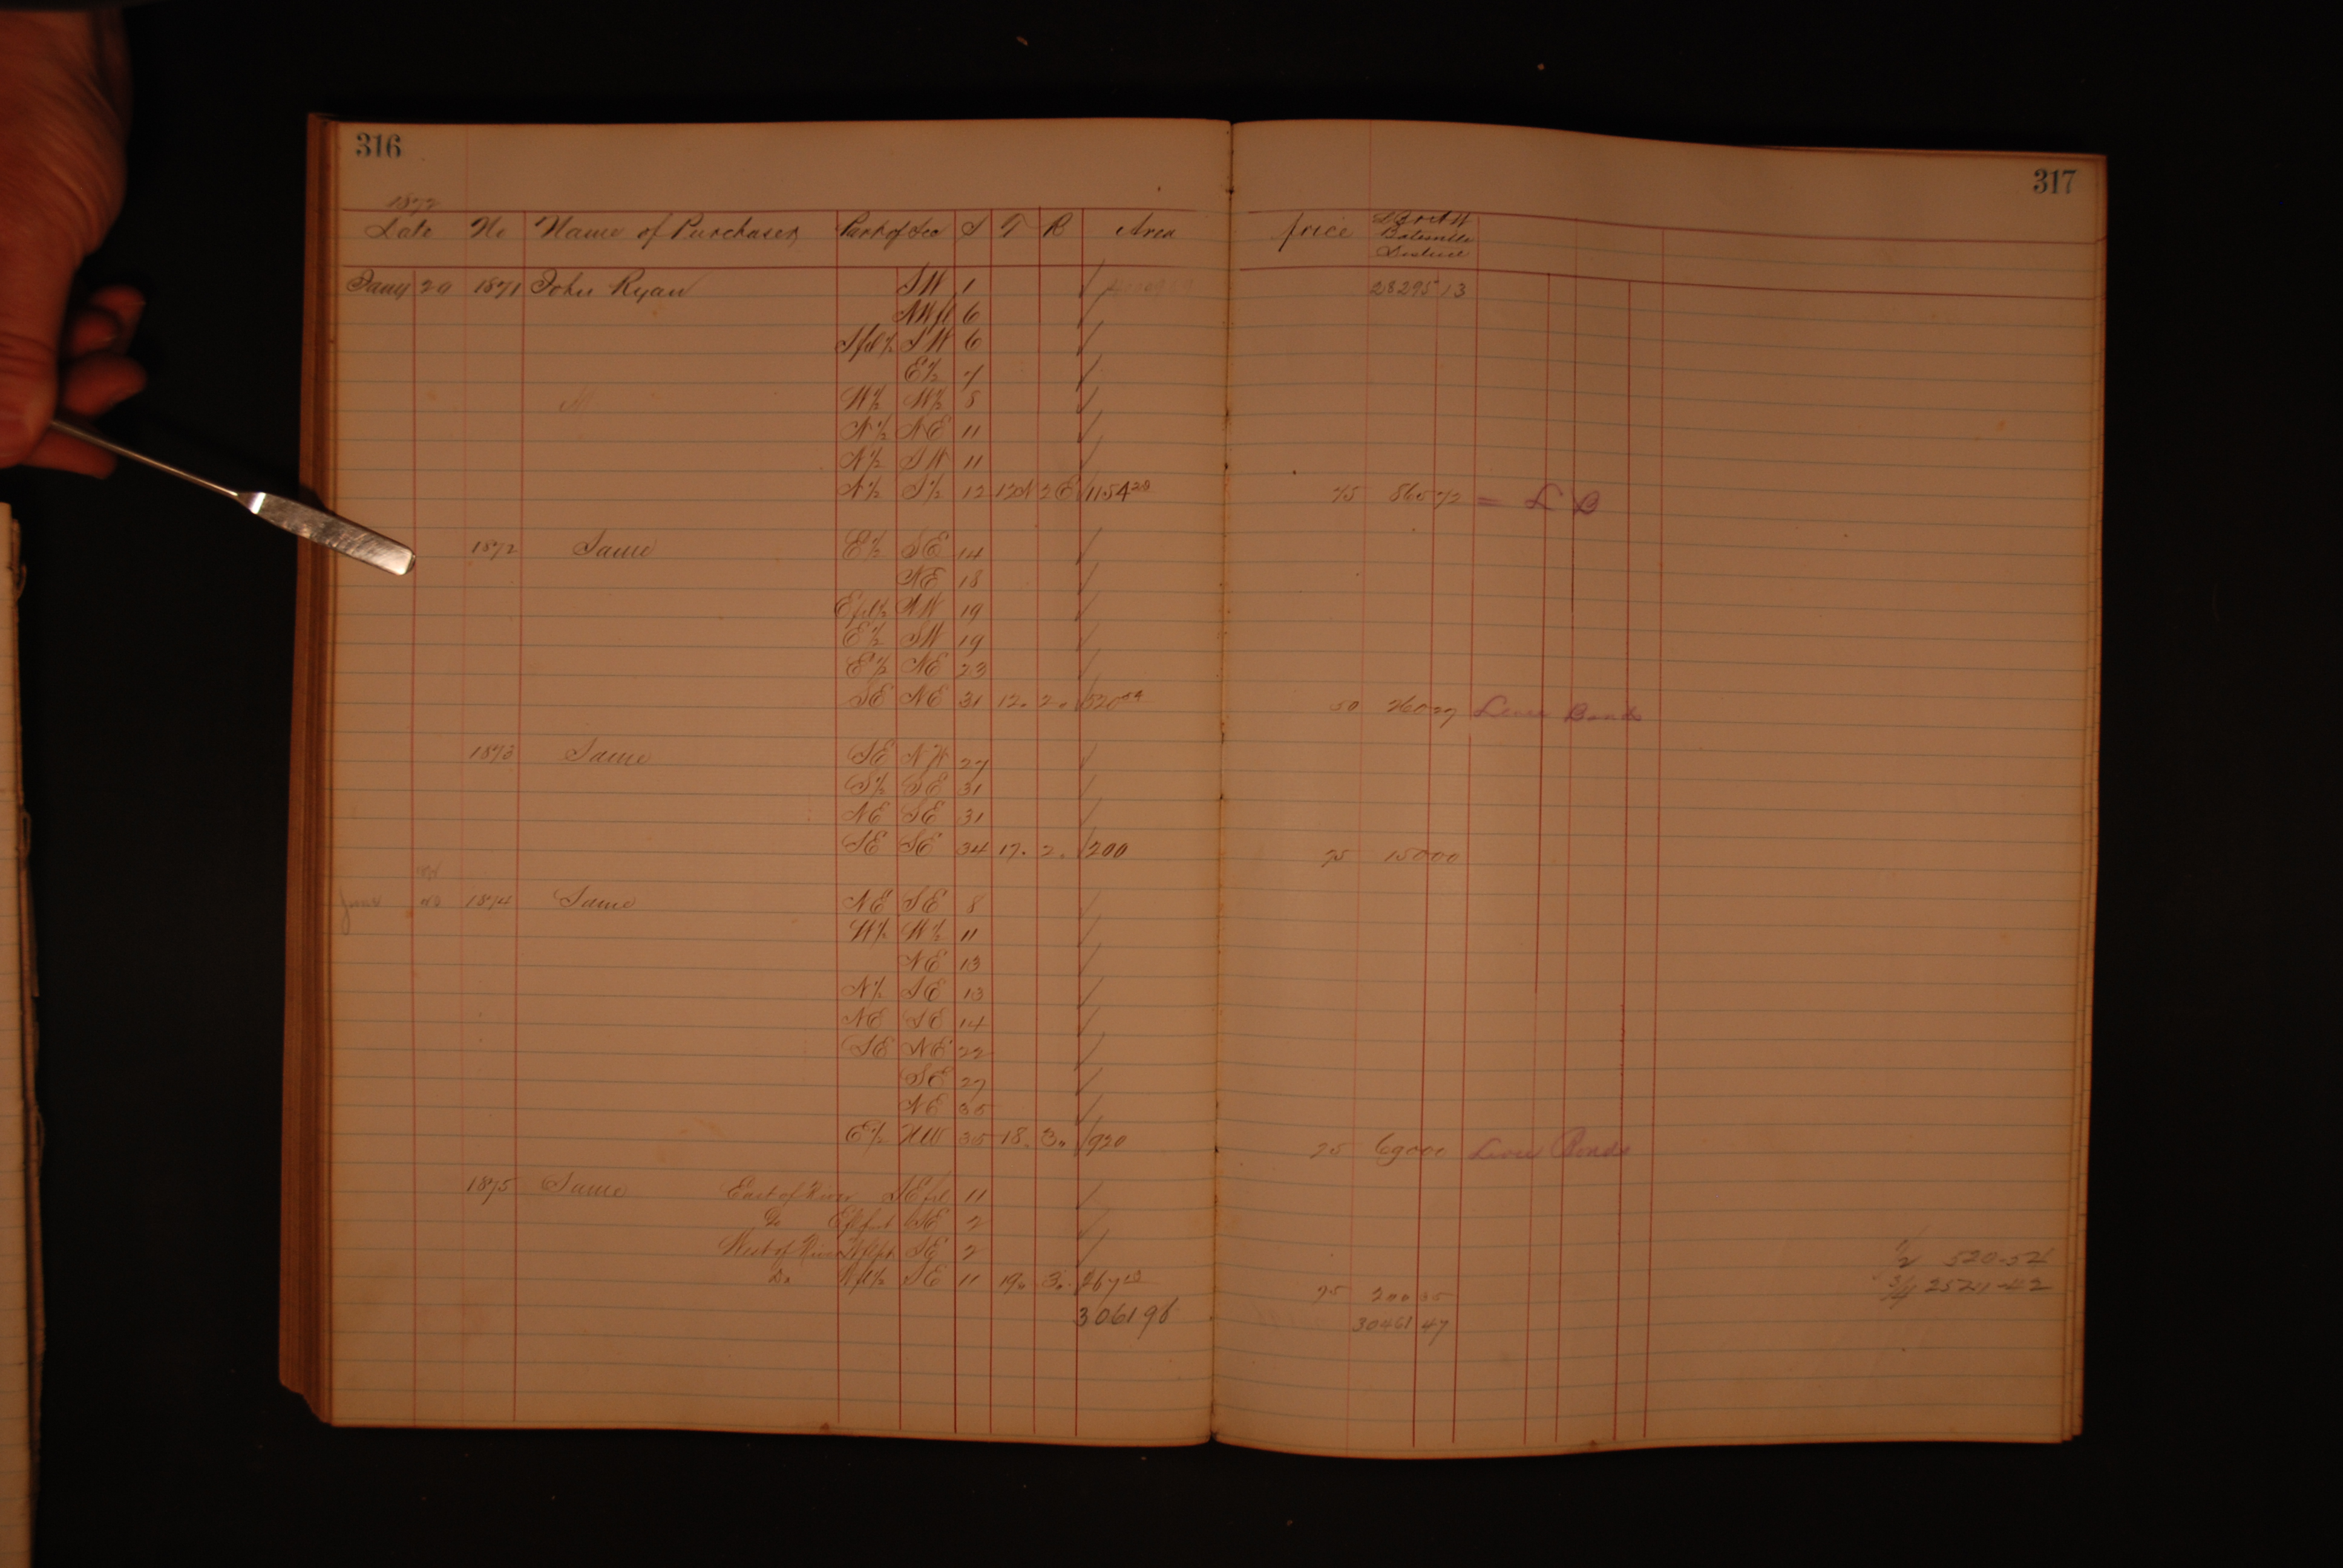 316
317
1872
Date No Name of Purchaser Part of Sec S T R Area price District
Jany 20 1871 John Ryan SW 1 28295 13
NW fl 6
S frl ½ SW 6
E½ 7
W½ W½ 8
N½ NE 11
N½ SW 11
N½ S½ 12 12N 2E 1154 28 75 865 72 = L B
1872 Same E½ SE 14
NE 18
E frl ½ NW 19
E½ SW 19
E½ NE 23
SE NE 31 12. 2. 520 54 50 260 27 Levee Bonds
1873 Same SE NW 27
S½ SE 31
NE SE 31
SE SE 34 17. 2. 200 75 150 00
June 1874 Same NE SE 8
W½ W½ 11
NE 13
N½ SE 13
NE SE 14
SE NE 22
SE 27
NE 35
E½ NW 35 18. 3. 920 75 690 00 Levee Bonds
1875 Same East of River SE frl 11
Do SE 2
West of River SE 2
Do W fl ½ SE 11 19. 3. 267 13 75 200 35
3061 96 30461 47
½ 520-54
¾ 2541-42